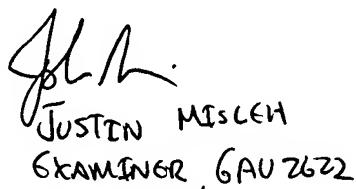 JUSTIN MISLEH
EXAMINER GAU 2622